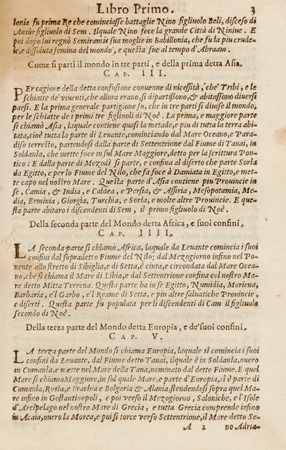 Libro Primo. 3
lonia fu prima Re che cominciasse battaglie Nino figliuolo Beli, disceso di
Assur figliuolo di Sem. Ilquale Nino fece la grande Città di Niniue. E
poi dopo lui regnò Semiramis sua moglie in Babillonia, che fu la piu crude-
le, e dissoluta femina del mondo, e questa fu al tempo d'Abraam.
Come si partì il mondo in tre parti, e della prima detta Asia.
CAP. III.
PEr cagione della detta confusione conuenne di necessità, che' Tribi, e le
schiatte de' viuenti, che allora erano, si dipartissono, & abitassono diuersi
paesi. E la prima generale partigione fu, che in tre parti si diuise il mondo,
per le schiatte de' primi tre figliuoli di Noè. La prima, e maggiore parte
si chiamò Asia, laquale contiene quasi la metade, e piu di tutta la terra abi-
tata, cioè tutta la parte di Leuante, cominciando dal Mare Oceano, e Para-
diso terresto, partendosi dalla parte di Settentrione dal fiume di Tanai, in
Soldania, che mette foce in sul Mare Maggiore, detto per la Scrittura Pon-
tico: E dalla parte di Mezzodì si parte, e confina al diserto che parte Soria
da Egitto, e per lo Fiume del Nilo, che fa foce à Damiata in Egitto, e met-
te capo nel nostro Mare. Questa parte d'Asia contiene piu Prouincie in
se, Camia, & India, e Caldea, e Persia, & Assiria, Mesopotamia, Me-
dia, Erminia, Giorgia, Turchia, e Soria, e molte altre Prouincie. E que-
sta parte abitaro i discendenti di Sem, il primo figliuolo di Noè.
Della seconda parte del Mondo detta Africa, e suoi confini,
CAP. IIII.
LA seconda parte si chiamò Africa, laquale da Leuante comincia i suoi
confini dal sopradetto Fiume del Nilo; dal Mezogiorno infino nel Po-
nente allo stretto di Sibilia, e di Setta, e cinta, e circondata dal Mare Ocea-
no, che si chiama il Mare di Libia, e dal Settentrione confina col nostro Ma-
re detto Mitta Terrena. Questa parte ha in se Egitto, Numidia, Moriena,
Barbaria, e'l Garbo, e'l Reame di Setta, e piu altre saluatiche Prouincie,
e diserti. Questa parte fu populata per li discendenti di Cam il figliuolo
secondo di Noè.
Della terza parte del Mondo detta Europia, e de' suoi confini,
CAP. V.
LA terza parte del Mondo si chiama Europia, laquale il comincia i suoi
confini da Leuante, dal fiume detto Tanai, ilquale è in Soldania, ouero
in Cumania, e mette nel Mare della Tana, nominato dal detto Fiume. E quel
Mare si chiama Maggiore, in sul quale Mare, e parte d'Europia, si è parte di
Cumania, Rossia, e Brachia e Bolgaria & Alania stendendosi sopra quel Ma-
re infino in Gostantinopoli, e poi verso il Mezogiorno, Saloniche, e l'Isole
d'Arcipelago nel nostro Mare di Grecia, e tutta Grecia comprende infino
in Acaia, ouero la Morea, e poi si torce verso Settentrione, il Mare detto Se-
A 2 no Adria-